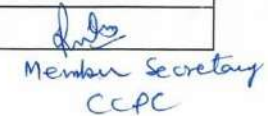 Member Secretary
CCPC